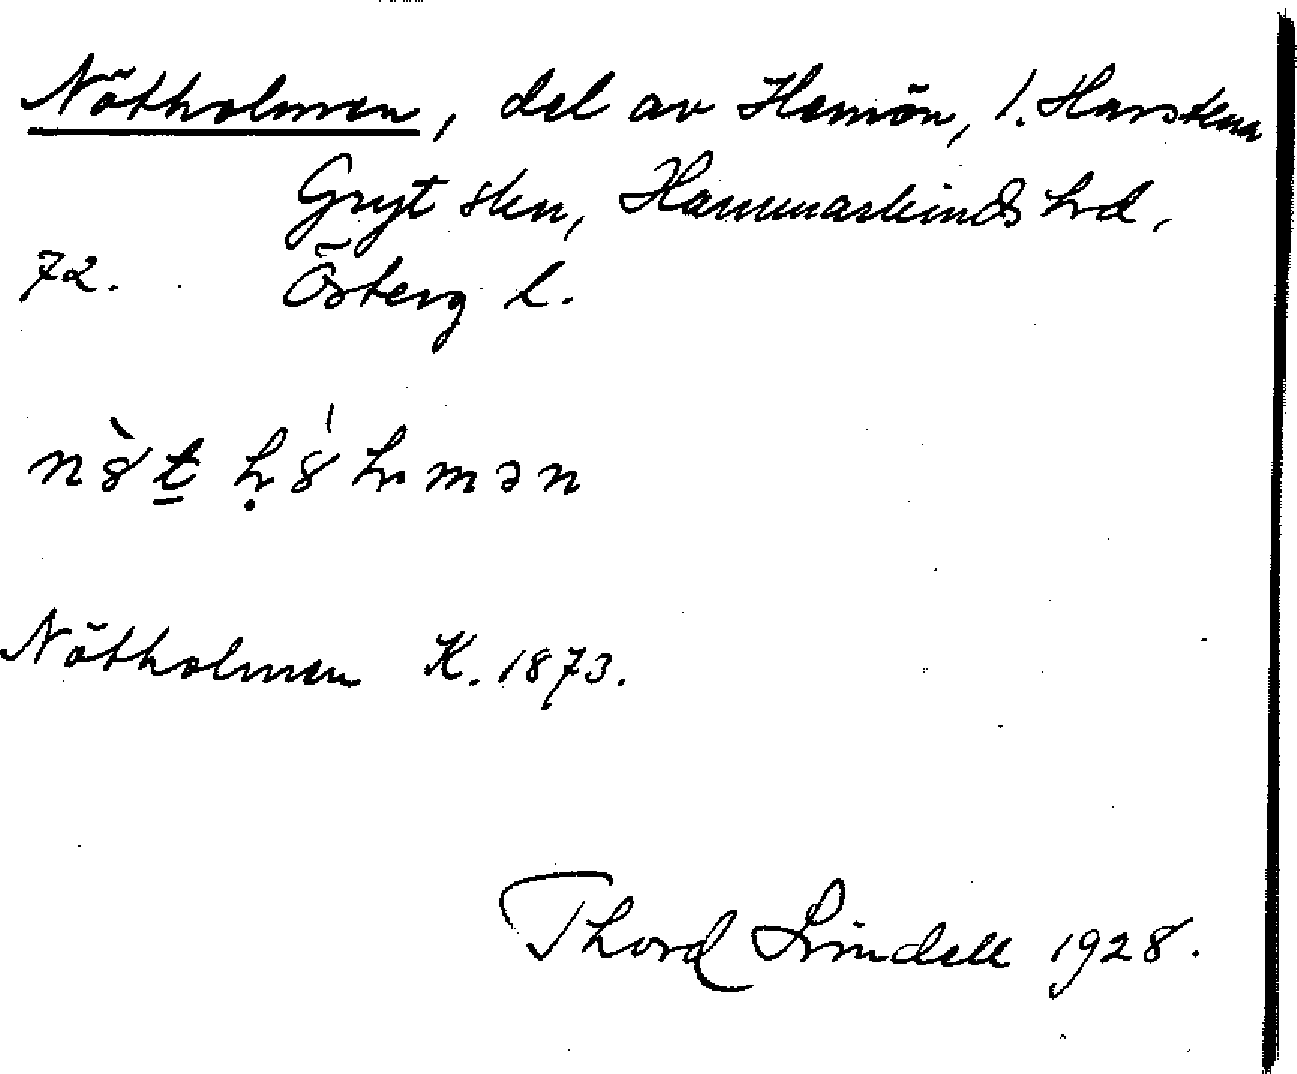 Nötholmen, del av Hemön, l. Harstena
Gryt skn, Hammarkinds hrd,
72. Österg l.
Nötholmen K. 1873.
Thord Lindell 1928.